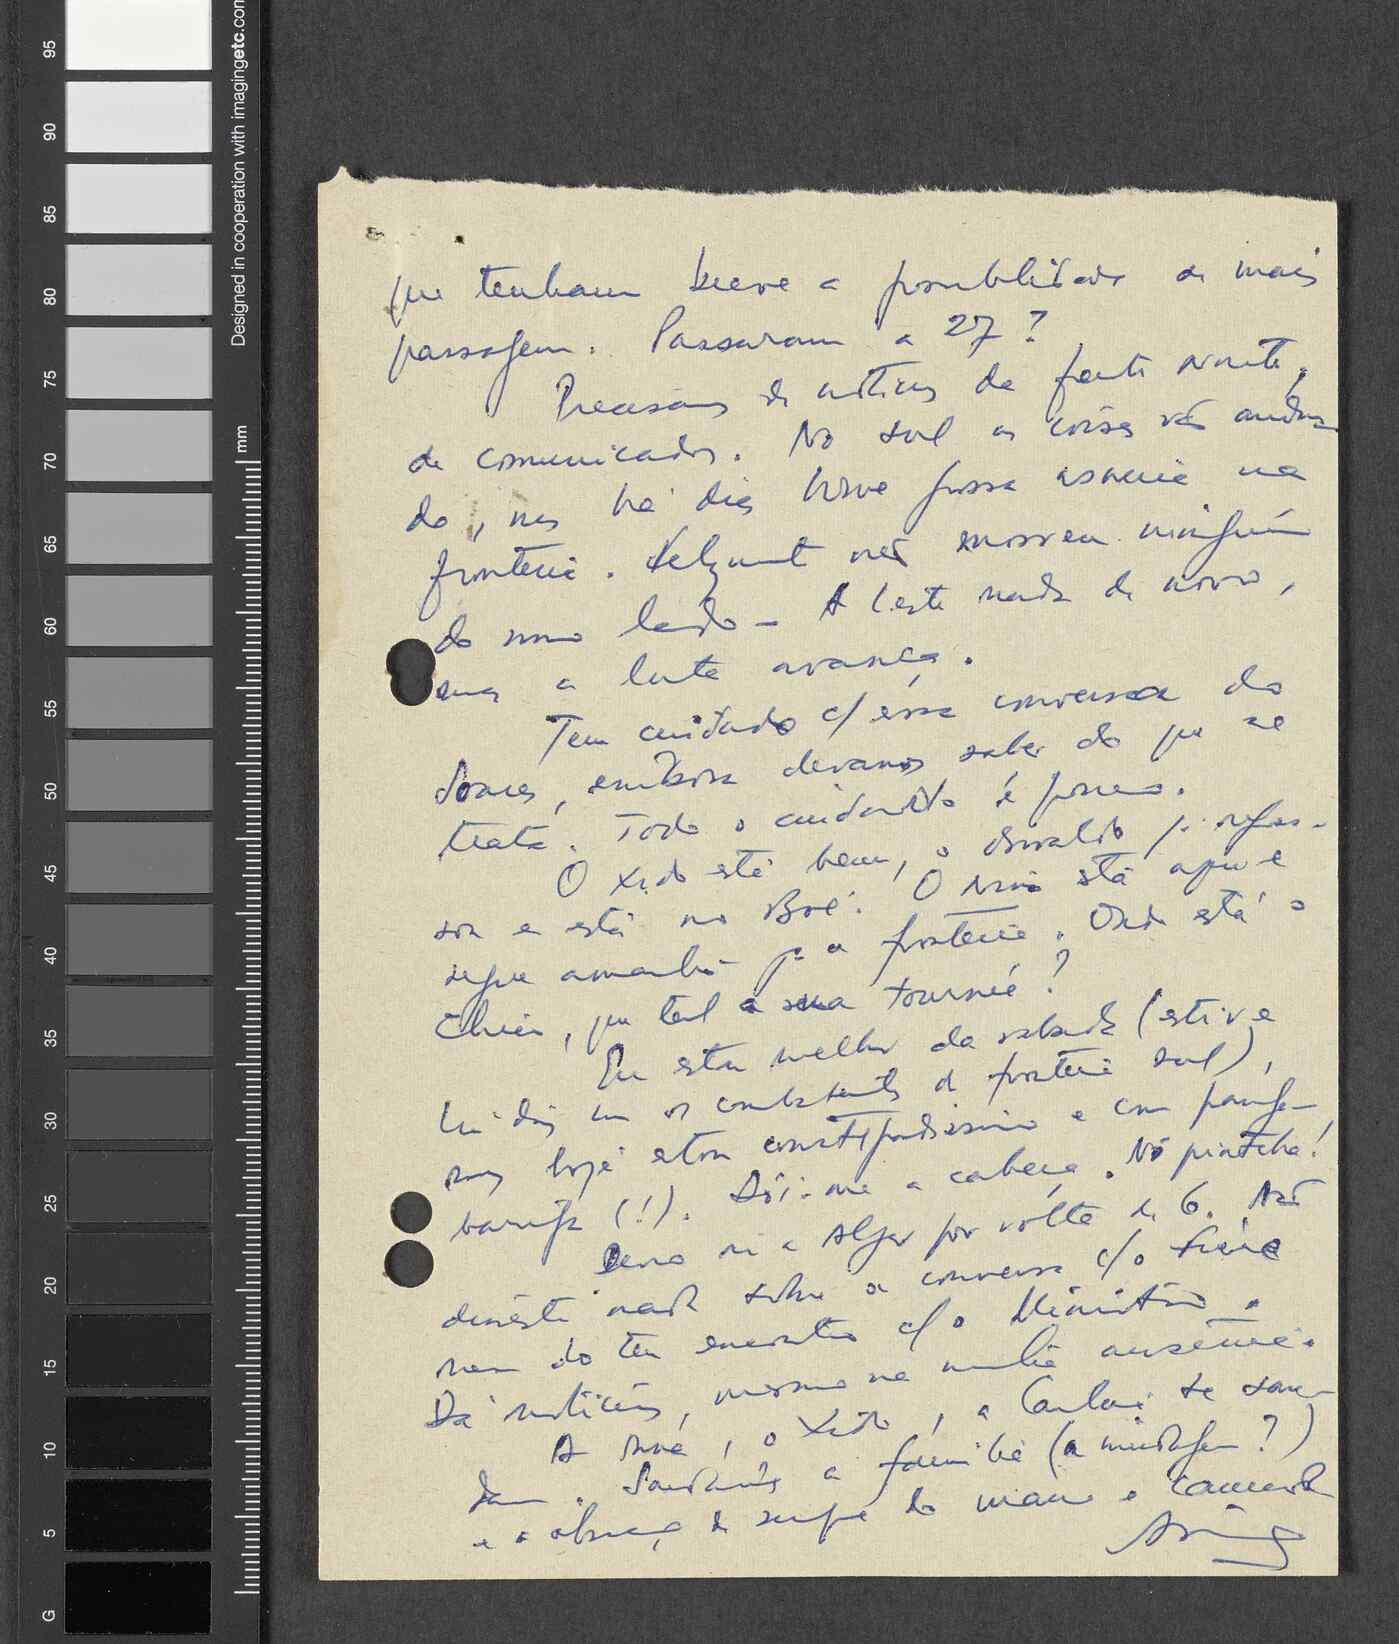 95
90
85
80
75
70
65
60
55
50
45
40
35
30
25
20
15
10
5
G
Designed in cooperation with imagingetc.com
mm
que tenham breve a possibilidade de mais
passagem. Passaram a 27?
Precisamos de notícias da frente norte,
de comunicados. No sul as coisas vão andan-
do, mas há dias houve grossa asneira na
fronteira. Felizmente não morreu ninguém
do nosso lado - A Leste nada de novo,
mas a luta avança.
Tem cuidado c/ essa conversa do
Soares, embora devamos saber do que se
trata. Todo o cuidado é pouco.
O Xido está bem, o Osvaldo já regres-
sou e está no Boé. O Nino está aqui e
segue amanhã p.a a fronteira. Onde está o
Chico, que tal a sua tournée?
Eu estou melhor da saúde (estive
há dias com os combatentes da fronteira sul),
mas hoje estou constipadíssimo e com
(!). Dói-me a cabeça. Nô pintcha!
Devo ir a Alger por volta de 6. Não
disseste nada sobre a conversa c/o
nem do teu encontro c/o Ministro.
Dá notícias, mesmo na minha ausência.
A Ana, o Xido, a te saú-
dam. Saudações a família (a ?)
e o abraço de sempre do mano e camarada